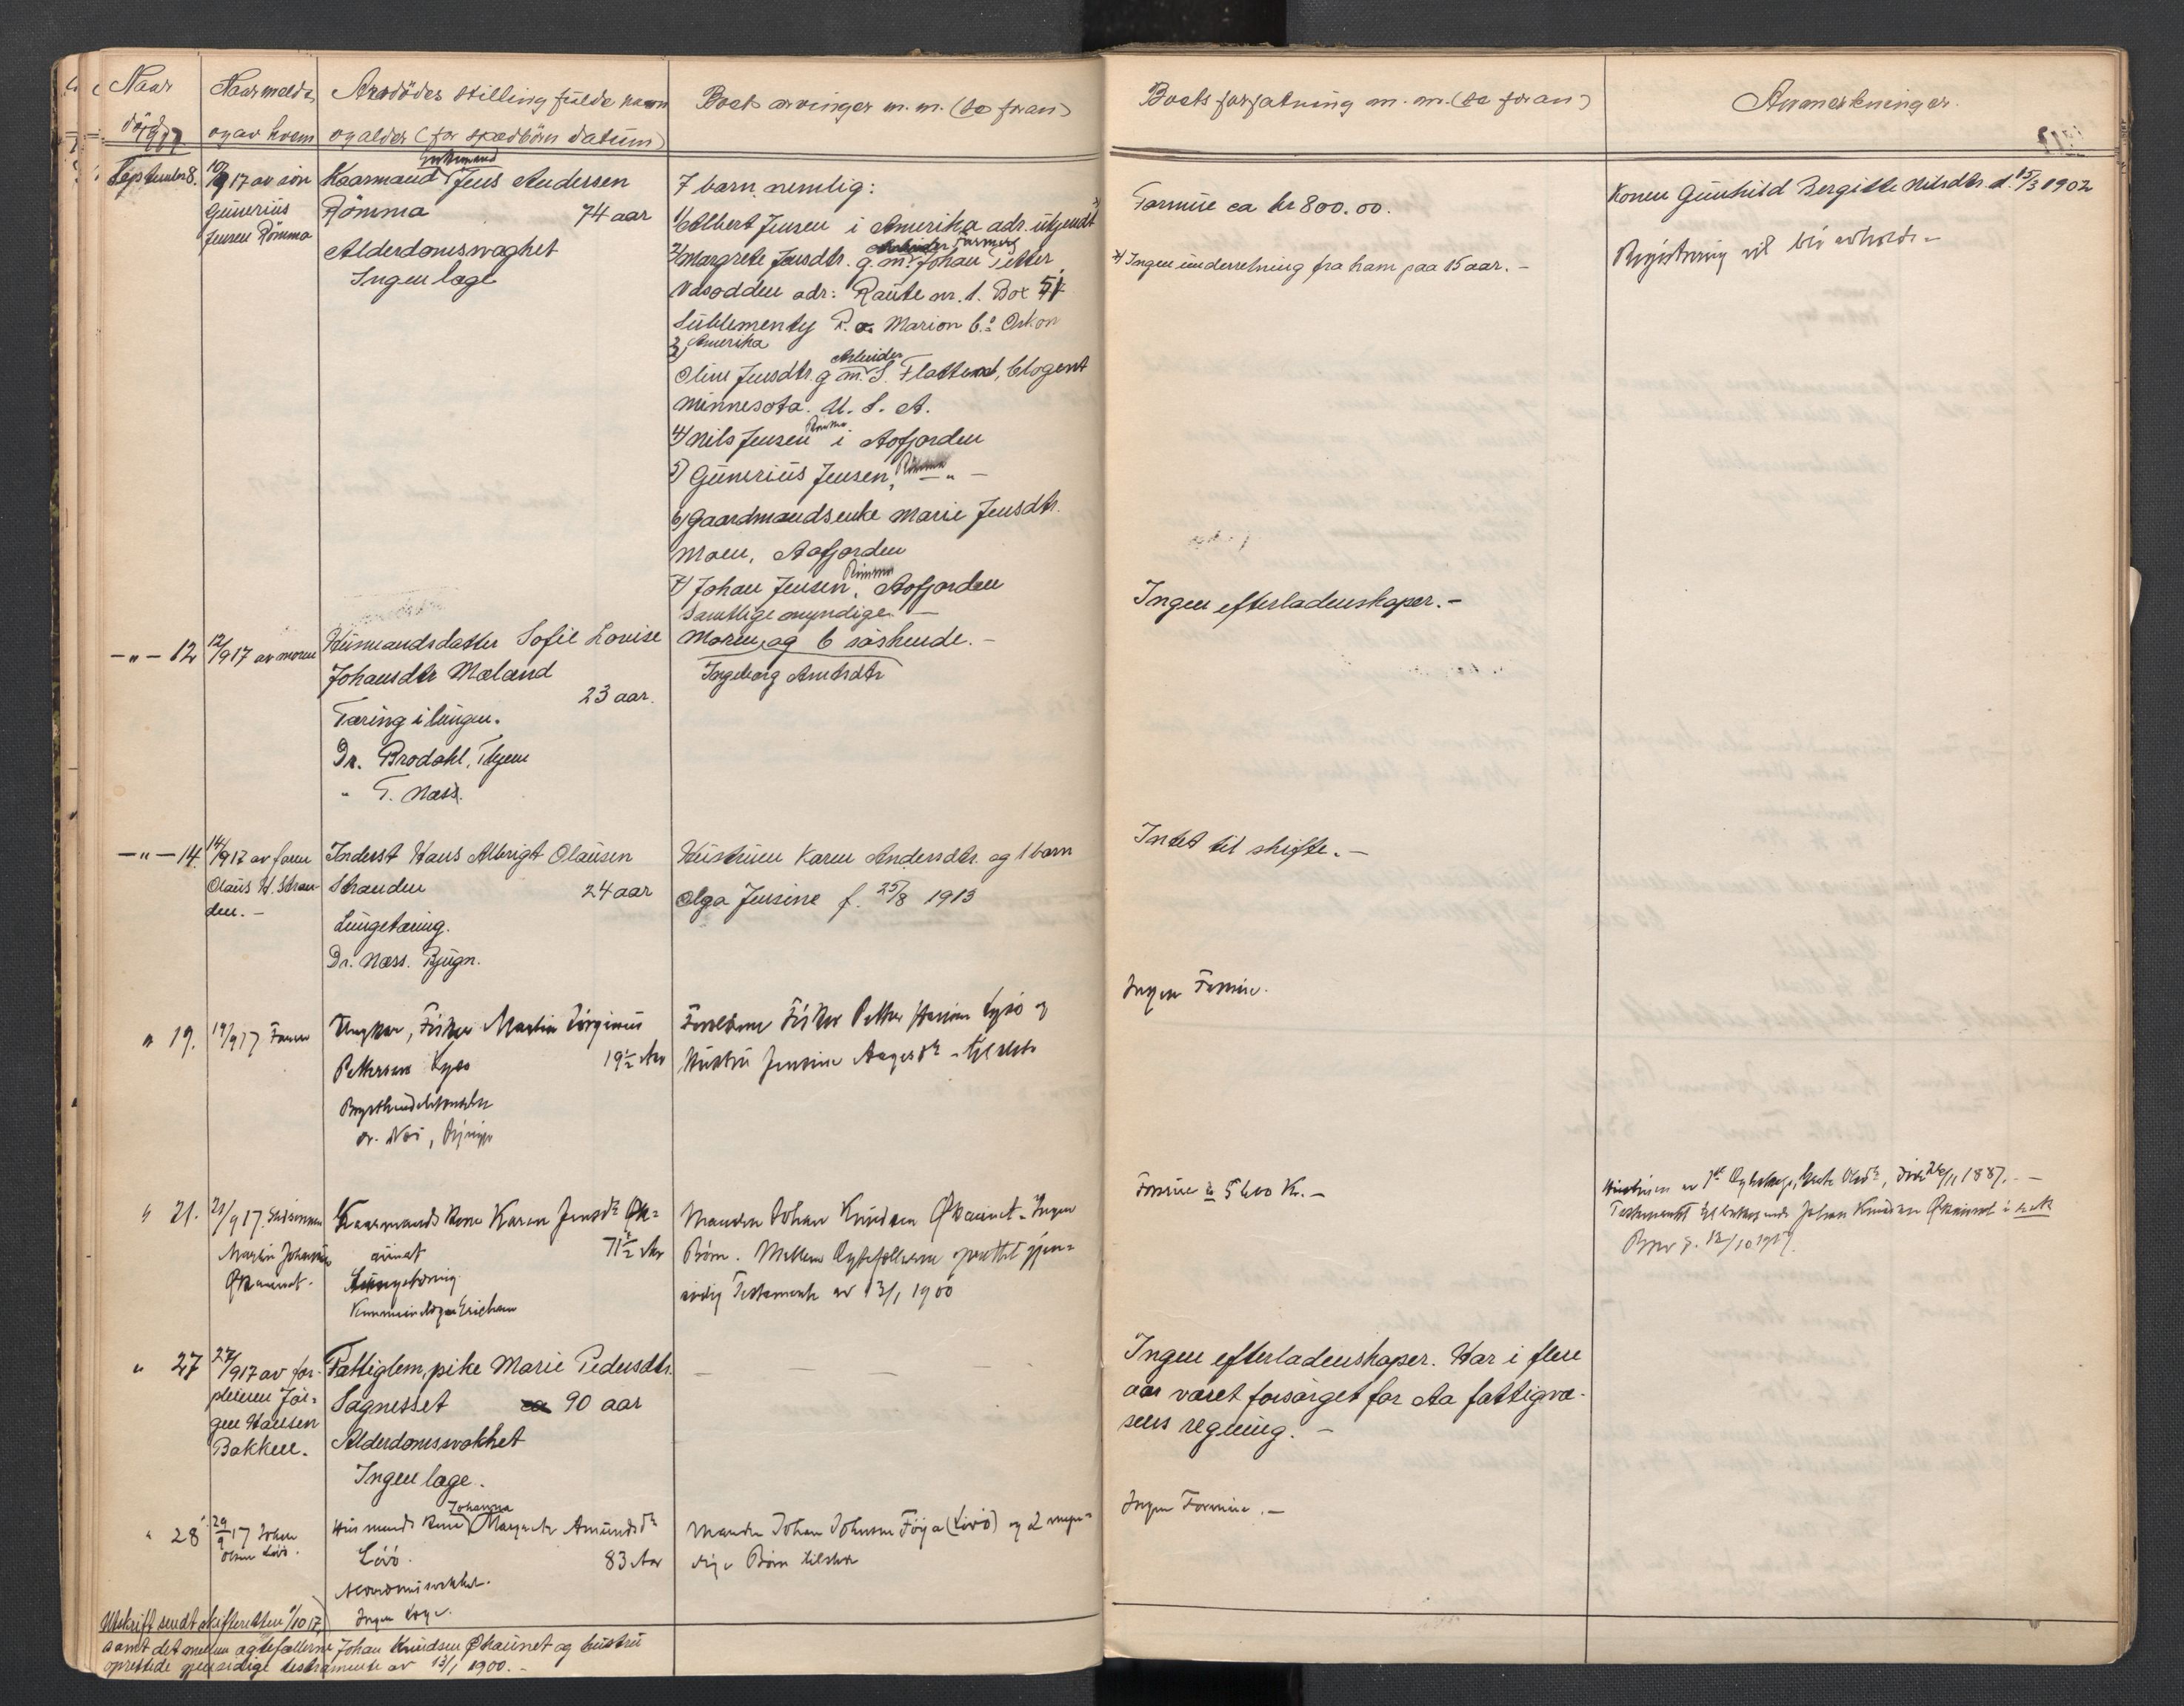 Naar
døde
Naar meldt,
og av hvem
Avdødes stilling fulde navn
og alder (for spædbørn datum)
Boets arvinger m.m. (se foran)
Boets forfatning m.m. (se foran)
Anmerkninger.
1917
September 8.
10/9 17 av søn
Gunerius
Jensen Rømma
Enkemand
Kaarmand Jens Andersen
Rømma 74 aar
Alderdomsvaghet
Ingen læge
7 barn nemlig:
1/ Albert Jensen i Amerika adr. ukjendt x)
2/ Margrete Jensdtr. g. m. Farmer Johan Petter
Vasodden adr: Raute nr. 1. Box 51
Sublementy P. o. Marion Co
Amerika
3)
Oline Jensdtr. g. m. Arbeider S. Flatten,
Minnesota. U. S. A.
4) Nils Jensen Rømma i Aafjorden
5) Gunerius Jensen, Rømma - " -
6) Gaardmandsenke Marie Jensdtr.
Moen, Aafjorden
7) Johan Jensen, Rømma Aafjorden
Samtlige myndige. -
Formue ca kr 800.00.
x) Ingen underretning fra ham paa 15 aar. -
Konen Gunhild Bergitte Nilsdtr. d. 15/3 1902
Registrering vil bli avholdt. -
- " - 12
12/9 17 av moren
Husmandsdatter Sofie Lovise
Johansdtr Mæland
23 aar.
Tæring i lungen.
Dr. Brodahl,
" T. Næss.
Moren, og 6 søskende. -
Ingeborg Arntsdtr
Ingen efterladenskaper. -
- " - 14.
14/9 17 av faren
Olaus H. Stran-
den. -
Inderst Hans Albrigt Olausen
Stranden 24 aar
Lungetæring.
Dr. Næss. Bjugn.
Hustruen Karen Andersdtr. og 1 barn
Olga Jensine f. 25/8 1913
Intet til skifte. -
" 19.
19/9 17 Faren
Ungkar, Fisker Martin Jørginus
Pettersen Lysø 19 1/2 Aar
Brysthindebetændelse
Dr. Næs, Bjugn
Forældrene Fisker Petter Hansen Lysø og
Hustru Jensine Aagesdtr - tilstede
Ingen Formue.
" 21.
21/9 17. Gaardmand
Martin Johansen
Økaunet.
Kaarmands Kone Karen Jensdtr Øk=
aunet 71 1/2 Aar
Lungetæring
Kommunelæge Erichsen
Manden Johan Knudsen Økaunet. Ingen
Børn. Mellem Ægtefællerne oprettet gjen=
sidig Testamente av 13/1 1900
Formue ca 5600 Kr. -
Hustruen av 1ste Ægteskap, Olsdtr, døde 26/11 1887. -
Testamentet Johan Knudsen Økaunet i
Brev d. 12/10 1917.
" 27
27/9 17 av for-
pleieren Jør-
gen Hansen
Bakken.
Fattiglem, pike Marie Pedersdtr.
Sagnesset 90 aar
Alderdomsvakhet
Ingen læge.
- - -
Ingen efterladenskaper. Har i flere
aar været forsørget for Aa fattigvæ-
sens regning. -
" 28
29/9 17 Johan
Olsen Lövö.
Husmands Kone Johanna Margrete Amundsdtr
Lövö. 83 Aar
Alderdomsvakhet.
Ingen Læge.
Manden Johan Johnsen Föya (Lövö) og 2 myn=
dige Børn tilstede
Ingen Formue. -
Utskrift sendt skifteretten 1/10 17,
samt det mellem ægtefællerne Johan Knudsen Økaunet og hustru
oprettede gjensidige testamente av 13/1 1900. -